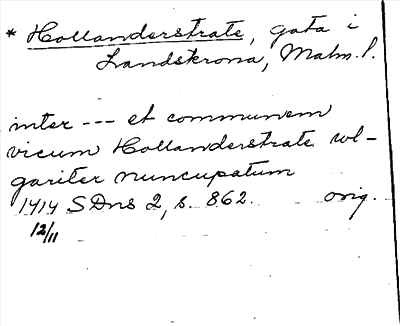 * Hollanderstrate, gata i
Landskrona, Malm. l.
inter --- et communem
vicum Hollanderstrate wl-
gariter nuncupatum
1414 SDns 2, s. 862. orig.
12/11